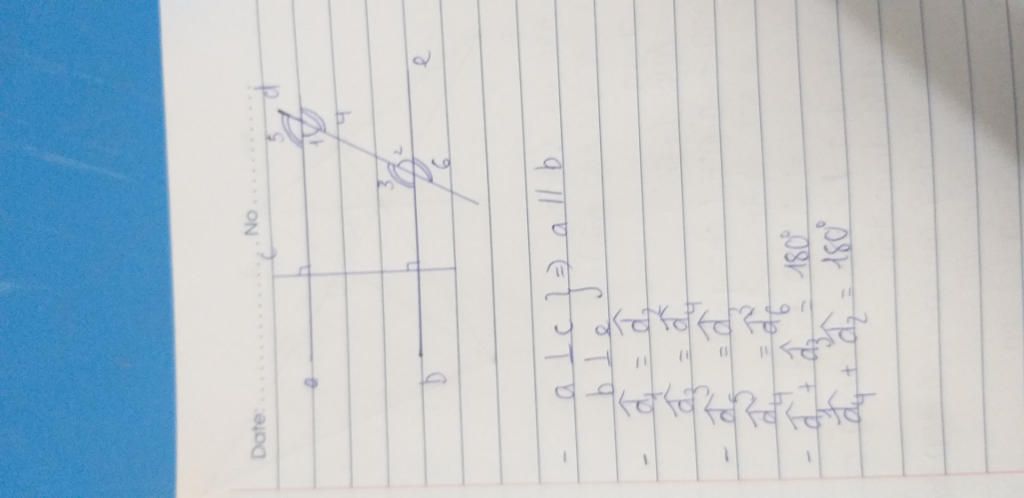 Date: No
c
d
a
5
1
4
3
2
6
b
e
- a ⊥ c } ⇒ a // b
b ⊥ c
- d̂₁ = d̂₂
d̂₃ = d̂₄
- d̂₅ = d̂₃
d̂₄ = d̂₆
- d̂₁ + d̂₃ = 180°
d̂₄ + d̂₂ = 180°